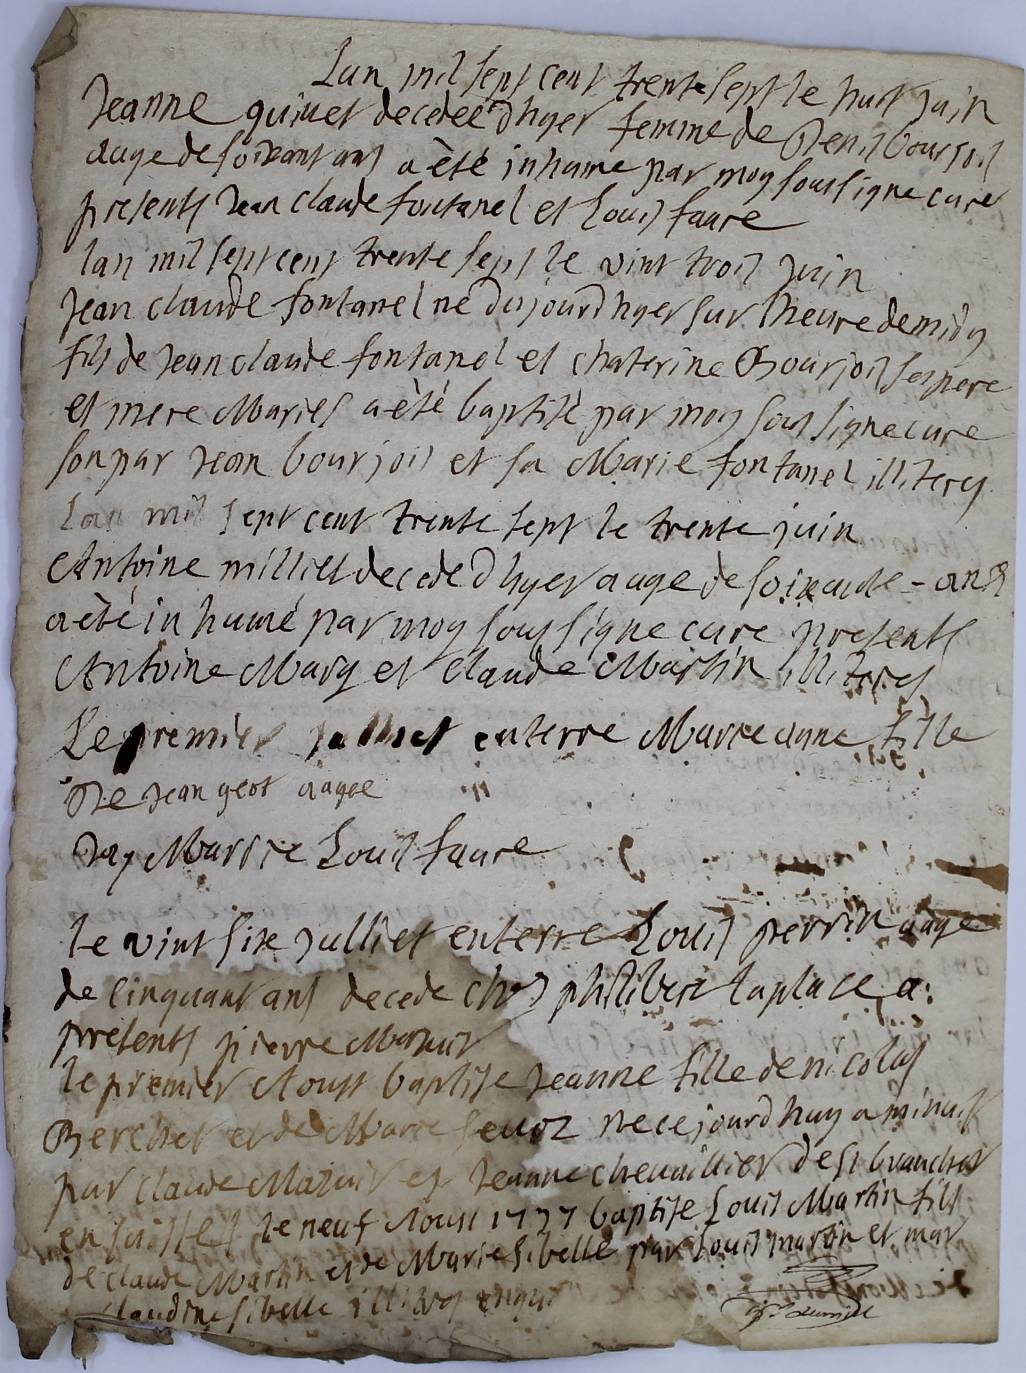 Lan mil sept cent trente sept le huit juin
Jeanne quinet decedée d'hyer femme de Denis bourjois
aage de soixant ans a èté inhume par moy soussigne curé
présents Jean claude fontanel et Louis faure
lan mil sept cent trente sept le vint trois juin
Jean claude fontanel né dujourd'hyer sur l'heure de midy
fils de Jean claude fontanel et chaterine Bourjois ses pere
et mere Maries a èté baptisé par moy sous signe cure
son par Jean bourjois et sa Marie fontanel illiterés
Lan mil sept cent trente sept le trente juin
Antoine milliet decede d'hyer aage de soixante - ans
a èté inhumé par moy sous signe cure presents
Antoine Mary et Claude Martin illiterés
Le premier juilliet enterre Marieanne fille
De Jean geot aagee
Louis faure
le vint sixe julliet enterre Louis perrin aage
de cinquant ans decede chés philibert laplace a:
presents pierre Mazuir
le premier Aoust baptise Jeanne fille de nicolas
Berchet et de Marie née cejourd'huy a minuit
par Claude Mazuir et Jeanne chevallier des branches
le neuf Aoust 1737 baptise Louis Martin fils
de claude Martin et de Marie sibelle par Louis martin et mar
claudine sibelle illiterés enquis